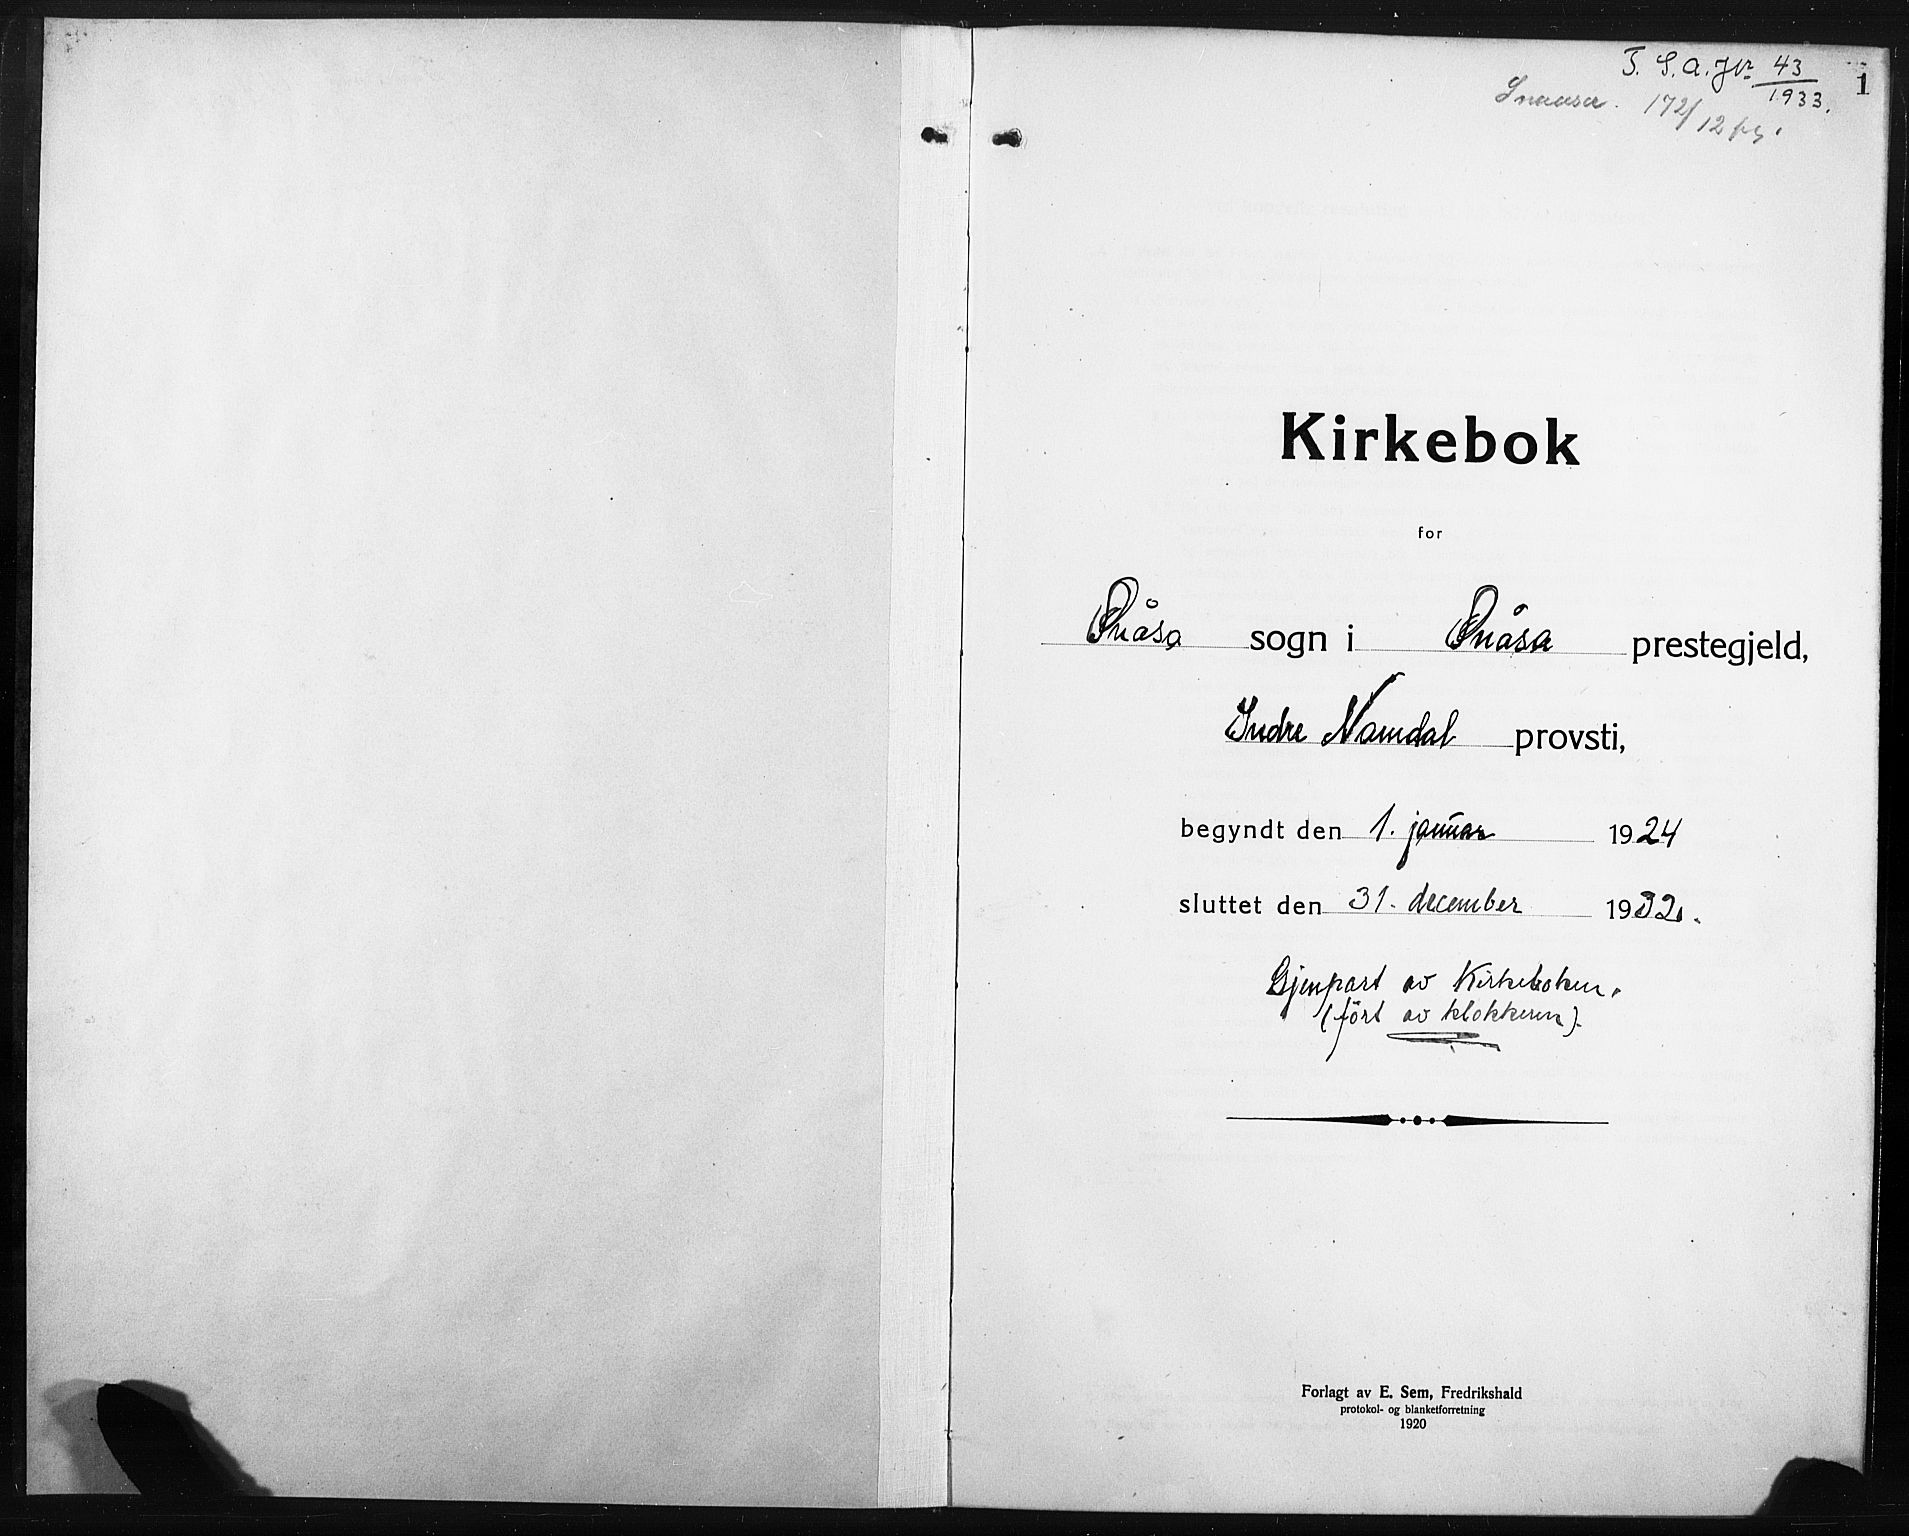 T. S. A. Jnr 43/1933.
1
Snaasa. 172/12 pg.
Kirkebok
for
Snåsa sogn i Snåsa prestegjeld,
Indre Namdal provsti,
begyndt den 1. januar 1924
sluttet den 31. december 1932.
Gjenpart av Kirkeboken.
(ført av klokkeren).
Forlagt av E. Sem, Fredrikshald
protokol- og blanketforretning
1920